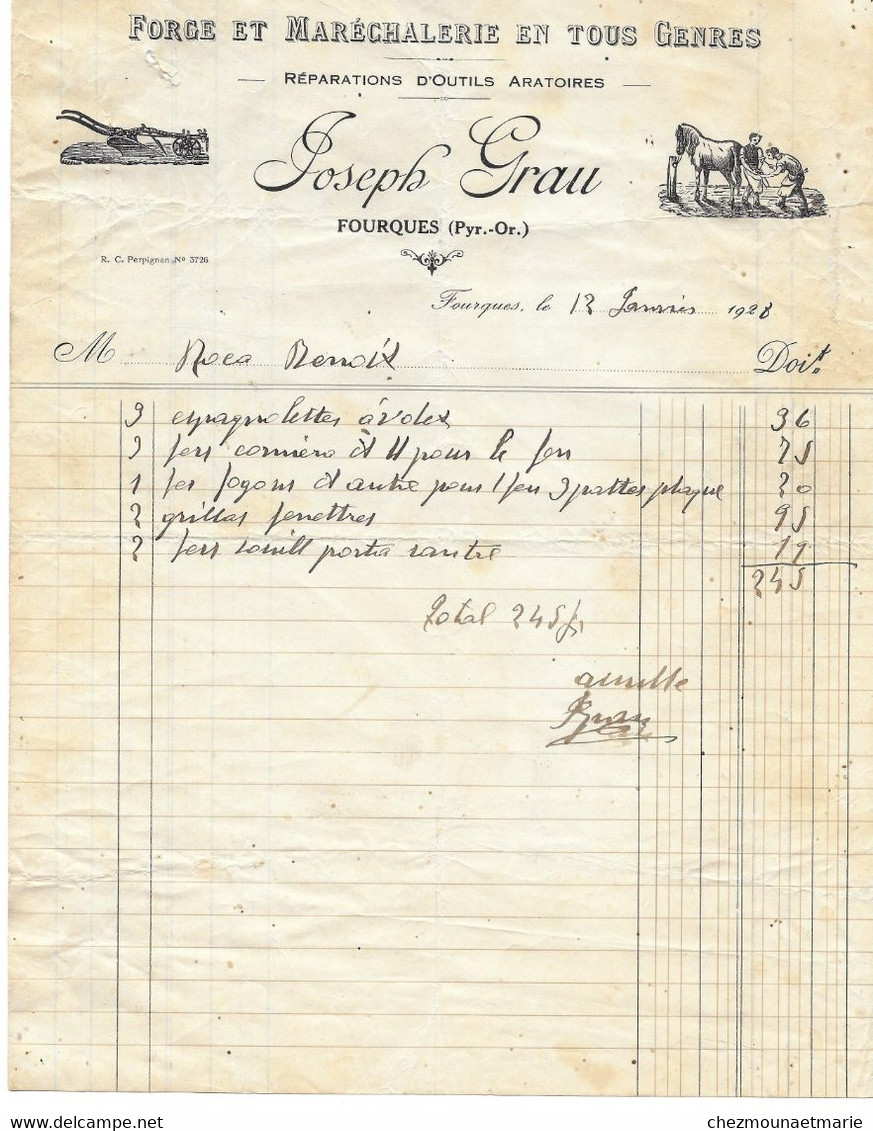 FORGE ET MARÉCHALERIE EN TOUS GENRES
RÉPARATIONS D'OUTILS ARATOIRES
Joseph Grau
FOURQUES (Pyr.-Or.)
R. C. Perpignan Nº 3726
Fourques, le 12 Janvier 1928
M Roca Benoit Doit
3 espagnolettes à volet 36
3 fers corniera et 4 pour le feu 75
1 fer fogons et autre pour 1 feu 3 pattes plaque 20
2 grillas fenettres 95
2 fers porta 19
245
Total 245 fr
Grau
delcampe.net
chezmounaetmarie